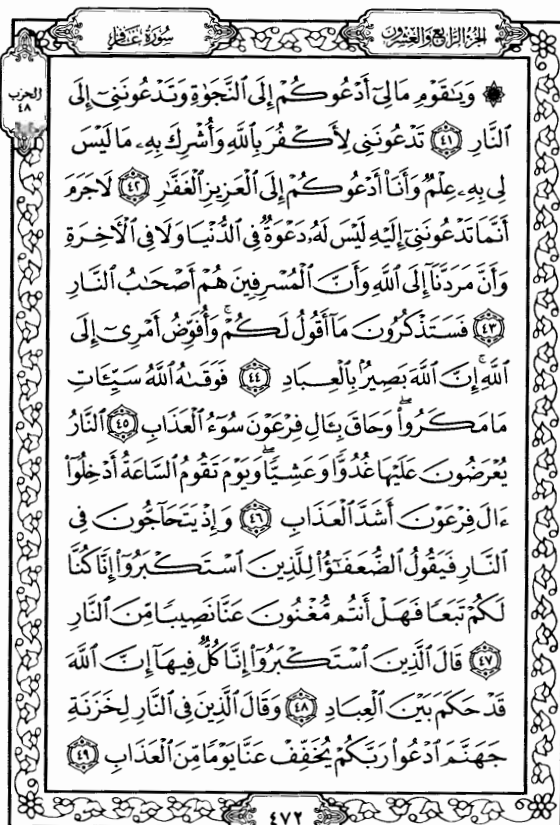 سُورَةُ غَافِرٍ
الجُزْءُ الرَّابِعُ وَالعِشْرُونَ
الحزب
٤٨
۞ وَيَٰقَوْمِ مَا لِىٓ أَدْعُوكُمْ إِلَى ٱلنَّجَوٰةِ وَتَدْعُونَنِىٓ إِلَى
ٱلنَّارِ ٤١ تَدْعُونَنِى لِأَكْفُرَ بِٱللَّهِ وَأُشْرِكَ بِهِۦ مَا لَيْسَ
لِى بِهِۦ عِلْمٌ وَأَنَا۠ أَدْعُوكُمْ إِلَى ٱلْعَزِيزِ ٱلْغَفَّٰرِ ٤٢ لَا جَرَمَ
أَنَّمَا تَدْعُونَنِىٓ إِلَيْهِ لَيْسَ لَهُۥ دَعْوَةٌ فِى ٱلدُّنْيَا وَلَا فِى ٱلْأَخِرَةِ
وَأَنَّ مَرَدَّنَآ إِلَى ٱللَّهِ وَأَنَّ ٱلْمُسْرِفِينَ هُمْ أَصْحَٰبُ ٱلنَّارِ
٤٣ فَسَتَذْكُرُونَ مَآ أَقُولُ لَكُمْ ۚ وَأُفَوِّضُ أَمْرِىٓ إِلَى
ٱللَّهِ ۚ إِنَّ ٱللَّهَ بَصِيرٌۢ بِٱلْعِبَادِ ٤٤ فَوَقَىٰهُ ٱللَّهُ سَيِّـَٔاتِ
مَا مَكَرُوا۟ ۖ وَحَاقَ بِـَٔالِ فِرْعَوْنَ سُوٓءُ ٱلْعَذَابِ ٤٥ ٱلنَّارُ
يُعْرَضُونَ عَلَيْهَا غُدُوًّا وَعَشِيًّا ۖ وَيَوْمَ تَقُومُ ٱلسَّاعَةُ أَدْخِلُوٓا۟
ءَالَ فِرْعَوْنَ أَشَدَّ ٱلْعَذَابِ ٤٦ وَإِذْ يَتَحَآجُّونَ فِى
ٱلنَّارِ فَيَقُولُ ٱلضُّعَفَٰٓؤُا۟ لِلَّذِينَ ٱسْتَكْبَرُوٓا۟ إِنَّا كُنَّا
لَكُمْ تَبَعًا فَهَلْ أَنتُم مُّغْنُونَ عَنَّا نَصِيبًا مِّنَ ٱلنَّارِ
٤٧ قَالَ ٱلَّذِينَ ٱسْتَكْبَرُوٓا۟ إِنَّا كُلٌّ فِيهَآ إِنَّ ٱللَّهَ
قَدْ حَكَمَ بَيْنَ ٱلْعِبَادِ ٤٨ وَقَالَ ٱلَّذِينَ فِى ٱلنَّارِ لِخَزَنَةِ
جَهَنَّمَ ٱدْعُوا۟ رَبَّكُمْ يُخَفِّفْ عَنَّا يَوْمًا مِّنَ ٱلْعَذَابِ ٤٩
٤٧٢